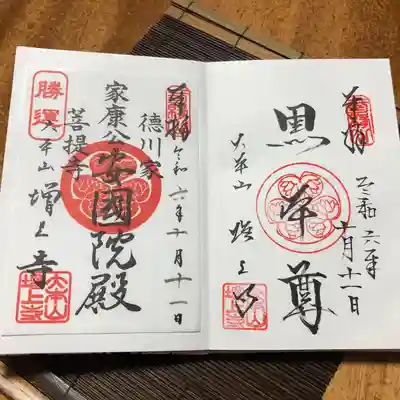 奉拝
黒本尊
令和六年
十月十一日
大本山 増上寺
奉拝
令和六年十月十一日
徳川家
家康公
安國院殿
菩提寺
勝運
大本山 増上寺
大本山
増上寺